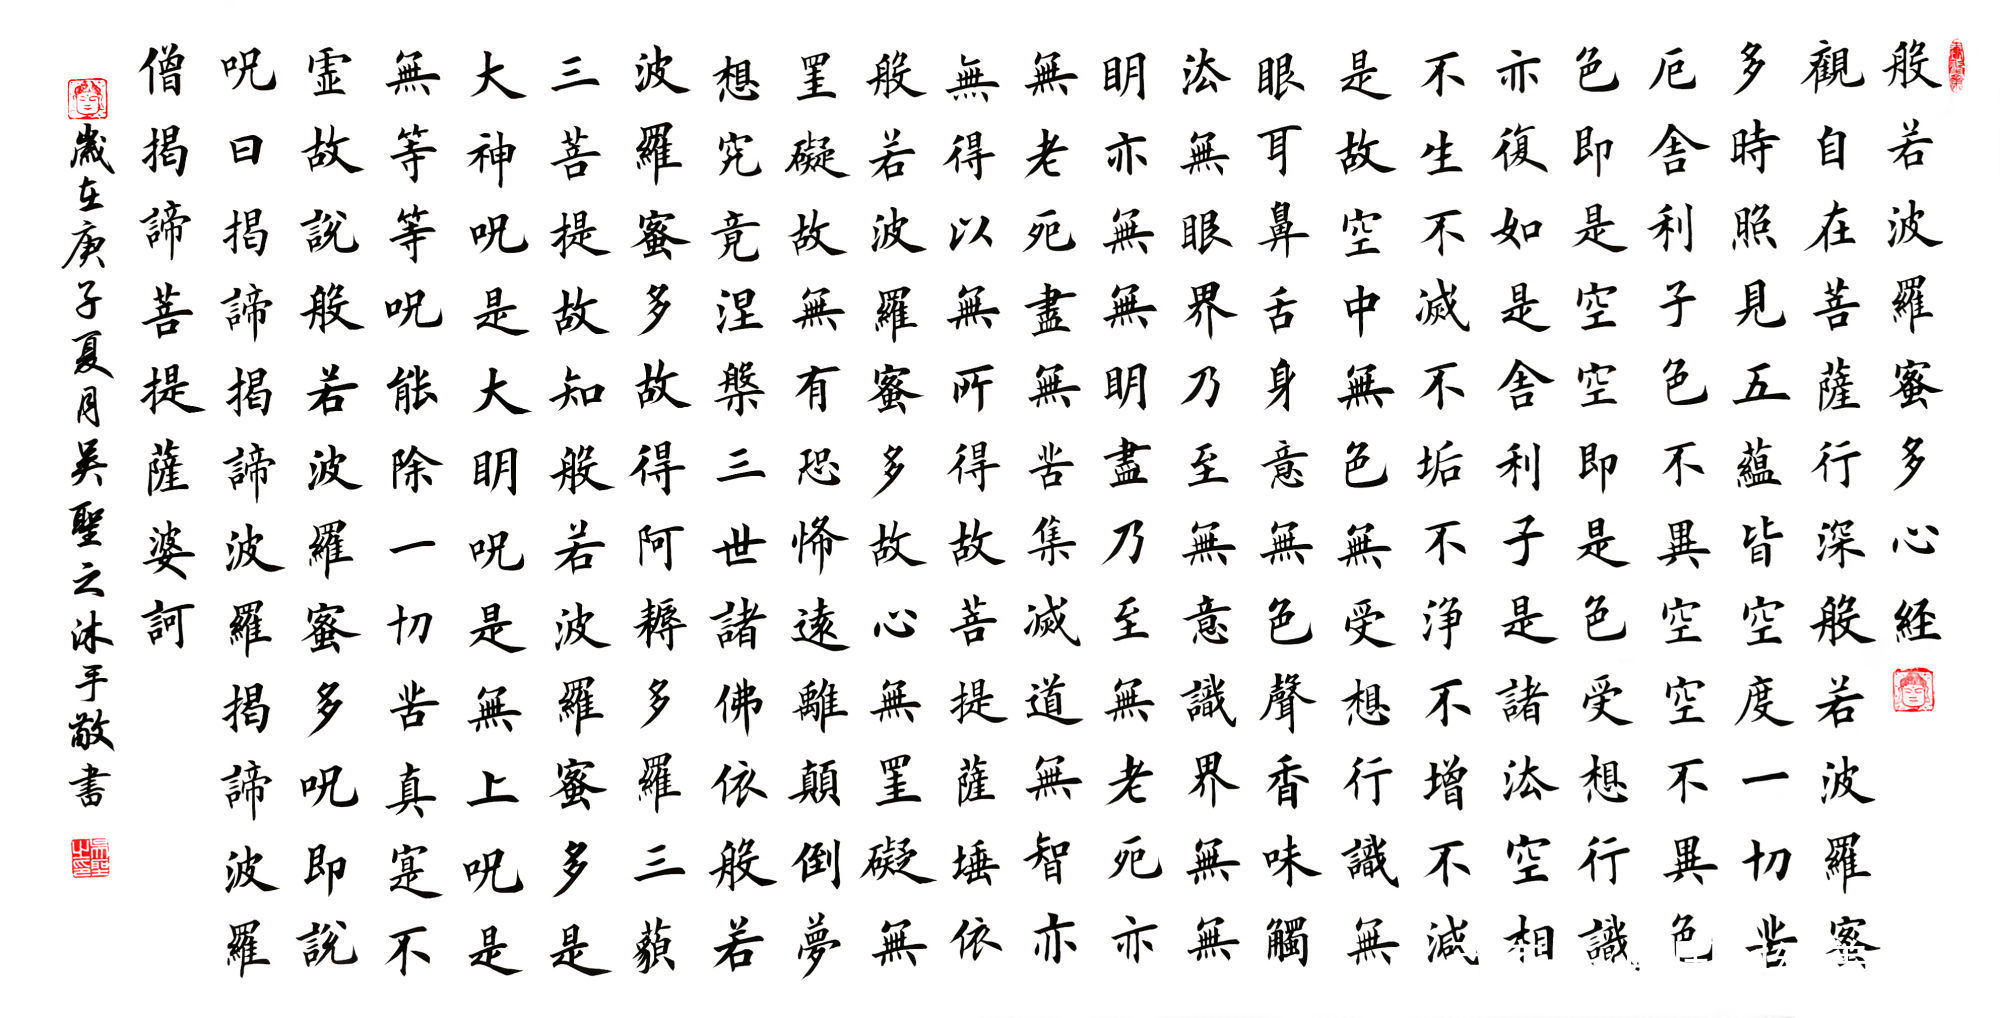 般若波羅蜜多心経
觀自在菩薩行深般若波羅蜜
多時照見五蘊皆空度一切苦
厄舍利子色不異空空不異色
色即是空空即是色受想行識
亦復如是舍利子是諸法空相
不生不滅不垢不淨不增不減
是故空中無色無受想行識無
眼耳鼻舌身意無色聲香味觸
法無眼界乃至無意識界無無
明亦無無明盡乃至無老死亦
無老死盡無苦集滅道無智亦
無得以無所得故菩提薩埵依
般若波羅蜜多故心無罣礙無
罣礙故無有恐怖遠離顛倒夢
想究竟涅槃三世諸佛依般若
波羅蜜多故得阿耨多羅三藐
三菩提故知般若波羅蜜多是
大神呪是大明呪是無上呪是
無等等呪能除一切苦真寔不
虛故說般若波羅蜜多呪即說
呪曰揭諦揭諦波羅揭諦波羅
僧揭諦菩提薩婆訶
歲在庚子夏月吳聖之沐手敬書